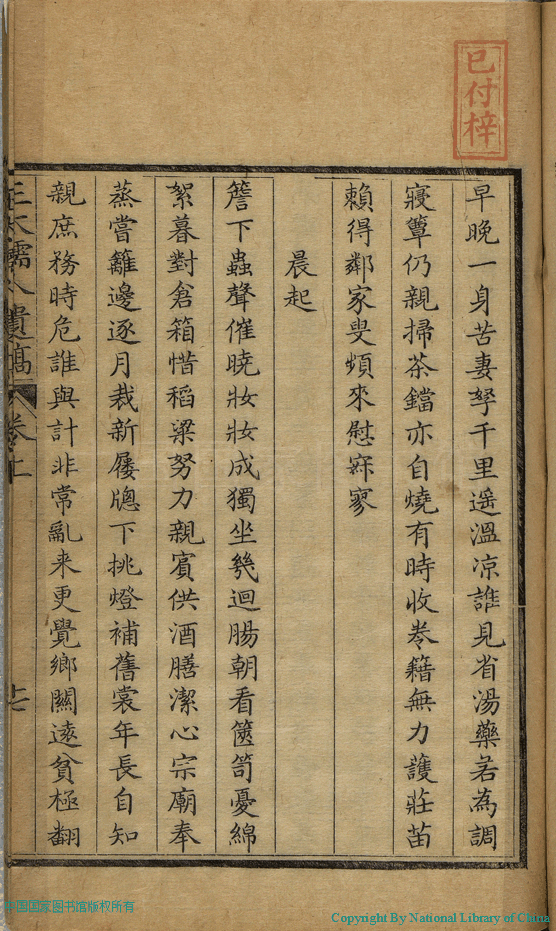 已付梓
早晚一身苦妻孥千里遥溫凉誰見省湯藥若為調
寢簟仍親掃茶鐺亦自燒有時收卷籍無力護莊苗
賴得鄰家叟頻來慰寂寥
晨起
簷下蟲聲催曉妝妝成獨坐幾迴腸朝看篋笥憂綿
絮暮對倉箱惜稻粱努力親賓供酒膳潔心宗廟奉
蒸嘗籬邊逐月栽新屨牕下挑燈補舊裳年長自知
親庶務時危誰與計非常亂来更覺鄉關遠貧極翻
遺稿 卷十
中国国家图书馆版权所有
Copyright By National Library of China